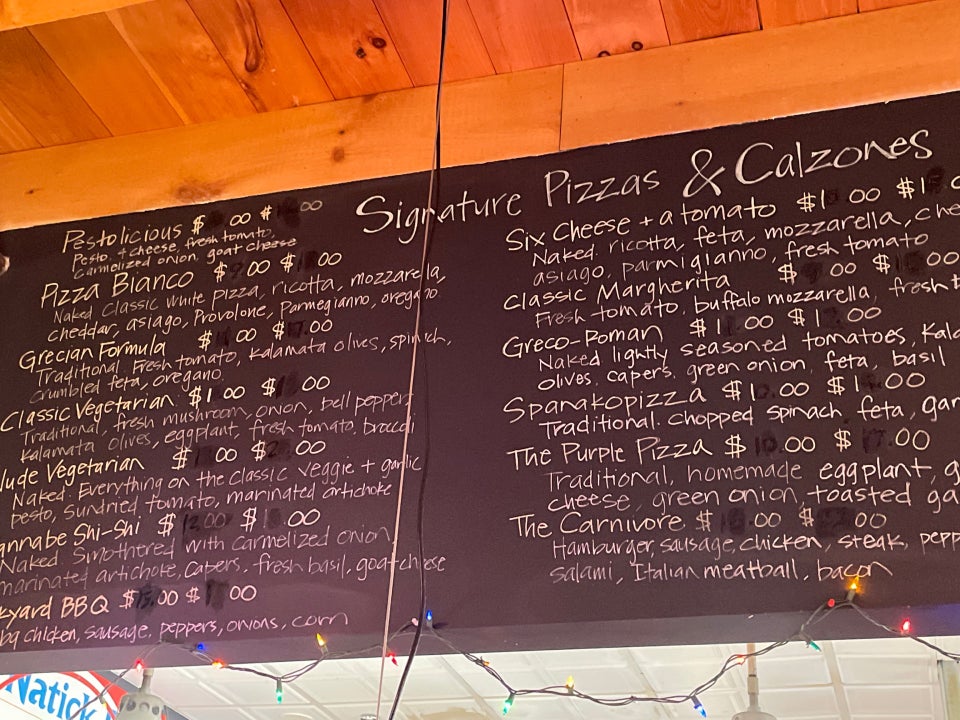 Signature Pizzas & Calzones
Pestolicious $ 00 $ 00
Pesto, 4 cheese, fresh tomato,
Carmelized onion, goat cheese
Pizza Bianco $ .00 $ .00
Naked Classic White Pizza, ricotta, mozzarella,
cheddar, asiago, Provolone, Parmegianno, oregano
Grecian Formula $ 00 $ .00
Traditional. Fresh tomato, Kalamata olives, spinich,
crumbled feta, oregano
Classic Vegetarian $1 .00 $ .00
Traditional, fresh mushroom, onion, bell pepper,
Kalamata olives, eggplant, fresh tomato, broccoli
lude Vegetarian $ .00 $ .00
Naked. Everything on the classic veggie + garlic
pesto, sundried tomato, marinated artichoke
annabe Shi-Shi $ $ .00
Naked Smothered with carmelized onion,
marinated artichoke, capers, fresh basil, goat cheese
kyard BBQ $ .00 $ 00
bq chicken, sausage, peppers, onions, corn
Six Cheese + a tomato $1 .00 $1
Naked. ricotta, feta, mozzarella, che
asiago, parmigianno, fresh tomato
Classic Margherita $ .00 $ .00
Fresh tomato, buffalo mozzarella, fresh
Greco-Roman $1 .00 $1 .00
Naked lightly seasoned tomatoes, Kala
olives, capers, green onion, feta, basil
Spanakopizza $1 .00 $1 .00
Traditional. chopped spinach, feta, gar
The Purple Pizza $ .00 $ .00
Traditional, homemade eggplant, g
cheese, green onion, toasted ga
The Carnivore $ .00 $ .00
Hamburger, sausage, chicken, steak, pepp
salami, Italian meatball, bacon
Natick